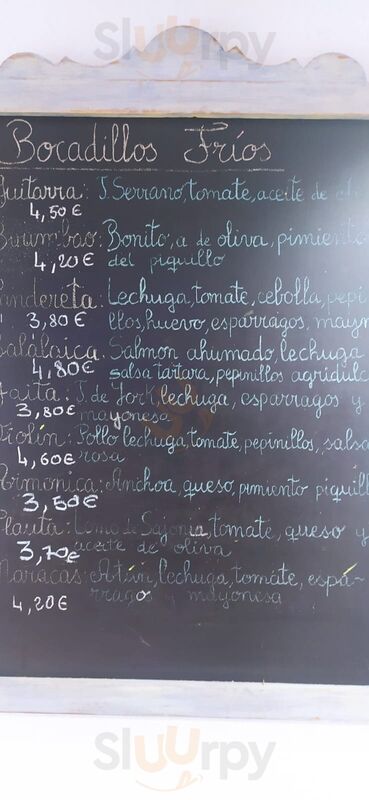 Slurpy
Bocadillos Fríos
Guitarra: J. Serrano, tomate, aceite de
4,50 €
Bonito, a de oliva, pimiento
4,20 € del piquillo
Pandereta: Lechuga, tomate, cebolla, pepi
3,80 € llos, huevo, esparragos, mayon
Balálaica. Salmon ahumado, lechuga
4,80 € salsa tártara, pepinillos agridulc
Gaita: J. de York, lechuga, esparragos y
3,80 € mayonesa
Violín: Pollo lechuga, tomate, pepinillos, salsa
4,60 € rosa
Armonica: Anchoa, queso, pimiento piquill
3,50 €
Flauta: Lomo de Sajonia, tomate, queso y
3,70 € aceite de oliva
Maracas: Atún, lechuga, tomate, espá-
rragos y mayonesa
4,20 €
Slurpy